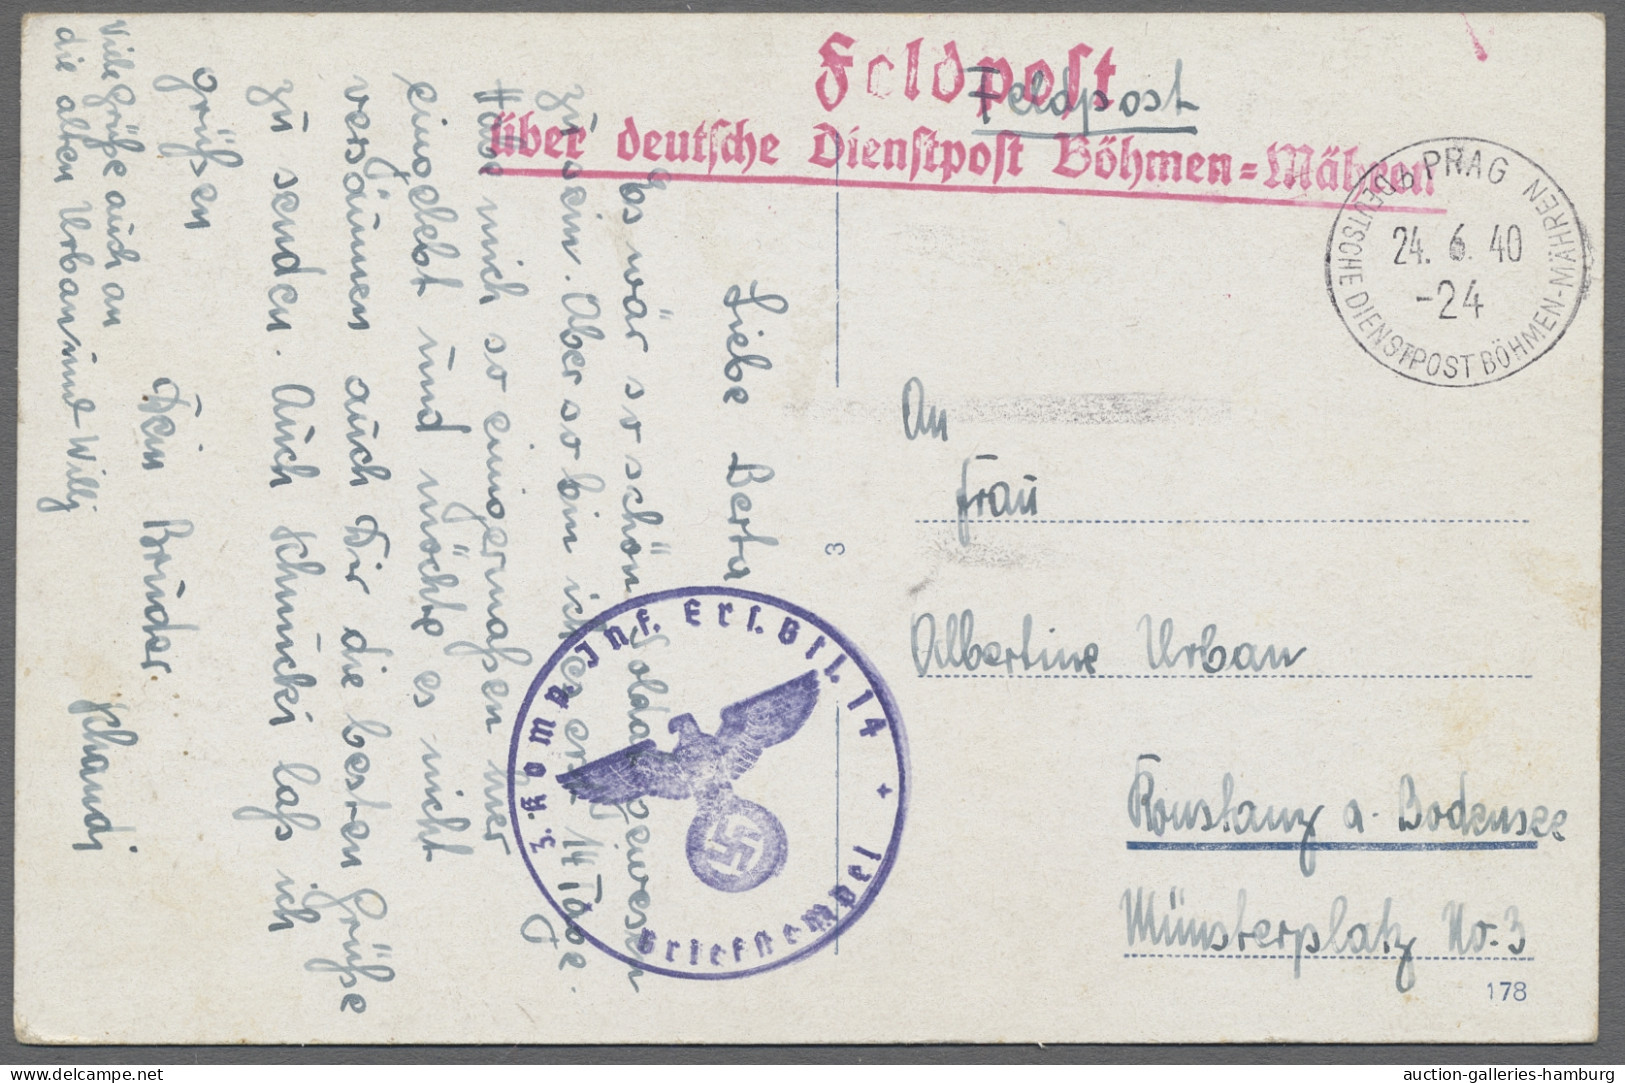 Feldpost
Feldpost
über deutsche Dienstpost Böhmen=Mähren
PRAG
24. 6. 40
-24
DEUTSCHE DIENSTPOST BÖHMEN-MÄHREN
Liebe Berta
Es wär so schön Soldat gewesen
zu sein. Aber so bin ich erst 14 Tage
Habe mich so einigermaßen hier
eingelebt und möchte es nicht
versäumen auch Dir die besten Grüße
zu senden. Auch Schnucki laß ich
grüßen
Dein Bruder
Viele Grüße auch an
die alten Urban und Willy
3. Komp. Inf. Ers. Btl. 14
Briefstempel
3
An
Frau
Albertine Urban
Konstanz a. Bodensee
Münsterplatz No. 3
178
auction-galleries-hamburg